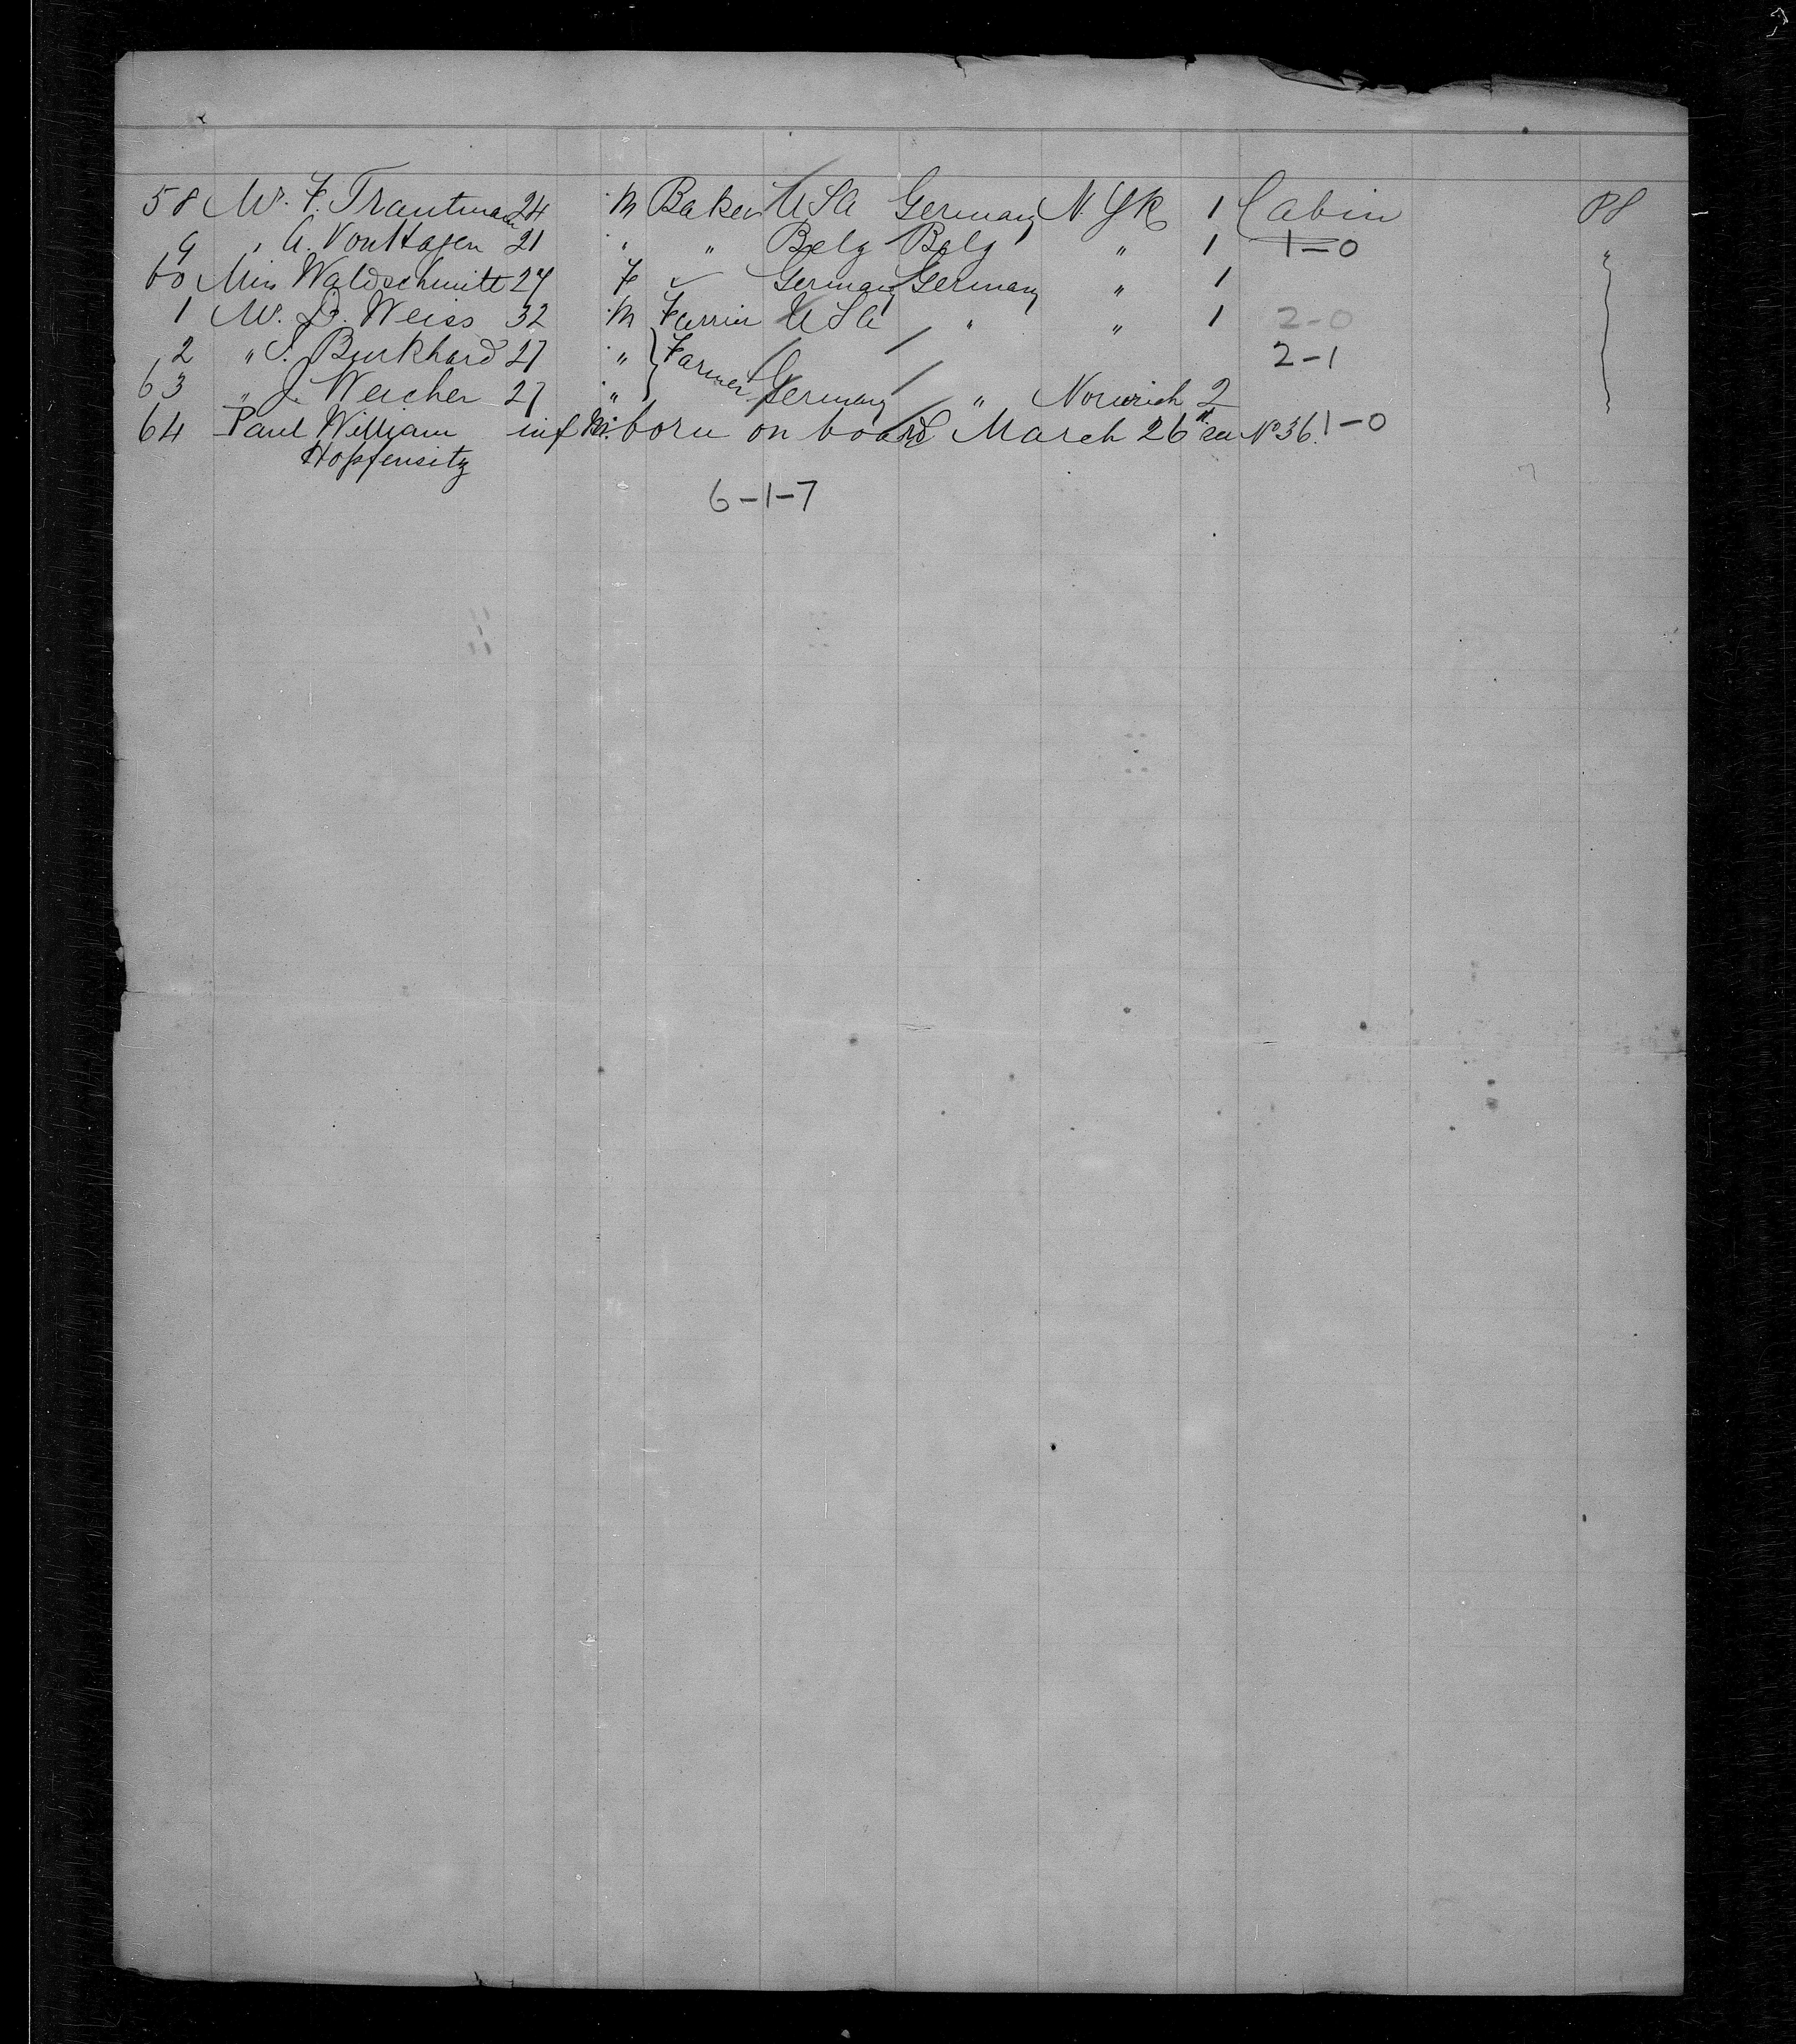 58 Mr. F. Trautman 24 M Baker USA Germany N. Yk 1 Cabin PS
9 " A. VonHagen 21 " " Belg Belg " 1 1-0 "
60 Miss Waldschmitt 27 F Germany Germany " 1
1 Mr. D. Weiss 32 M Furrier USA " " 1 2-0
2 " S. Burkhard 27 " } Farmer 2-1
63 " J. Weicher 27 " Germany " Norwich 2
64 Paul William inf M. born on board March 26th see No 36. 1-0
Hopfensitz
6-1-7